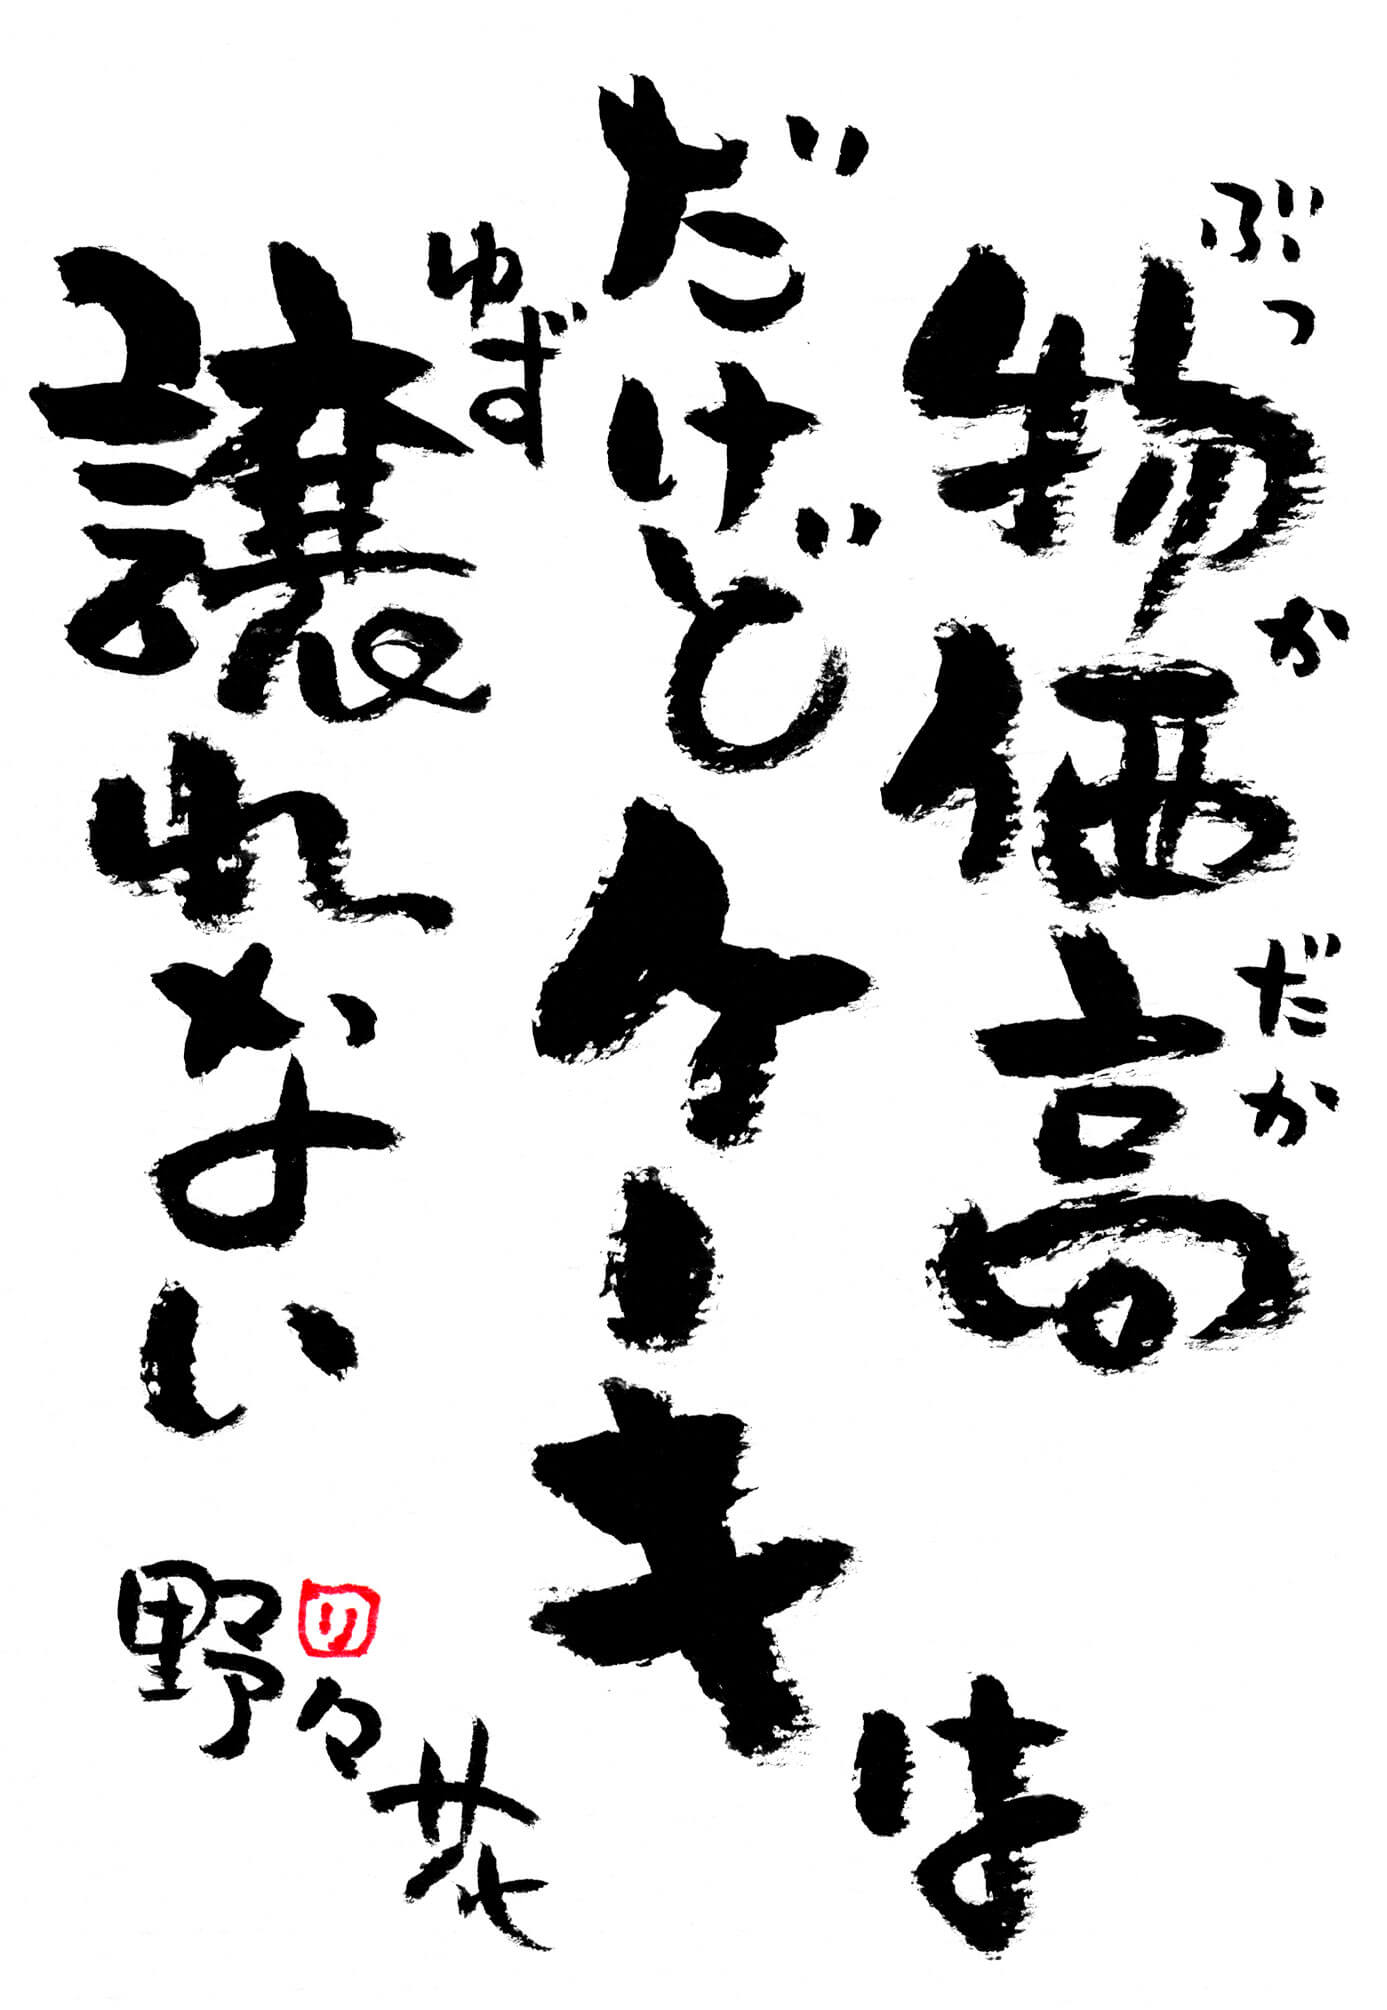 物価高
ぶっかだか
だけどケーキは
譲れない
ゆず
野々花
の